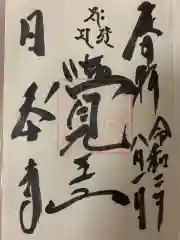 奉拝 令和二年八月一日
覺王山
日泰寺